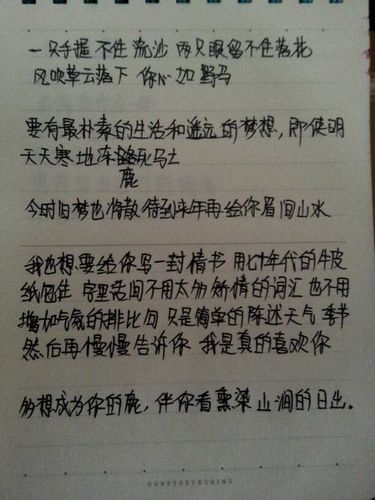 一只手握不住流沙 两只眼留不住落花
风吹草云落下 你心如野马
要有最朴素的生活和遥远的梦想，即使明
天天寒地冻路死马土
鹿
今时旧梦也将散 待到来年再绘你眉间山水
我也想要给你写一封情书 用七十年代的牛皮
纸包住 字里话间不用太多矫情的词汇 也不用
增加气氛的排比句 只是简单的陈述天气 季节
然后再慢慢告诉你 我是真的喜欢你
多想成为你的鹿，伴你看熏染山涧的日出。